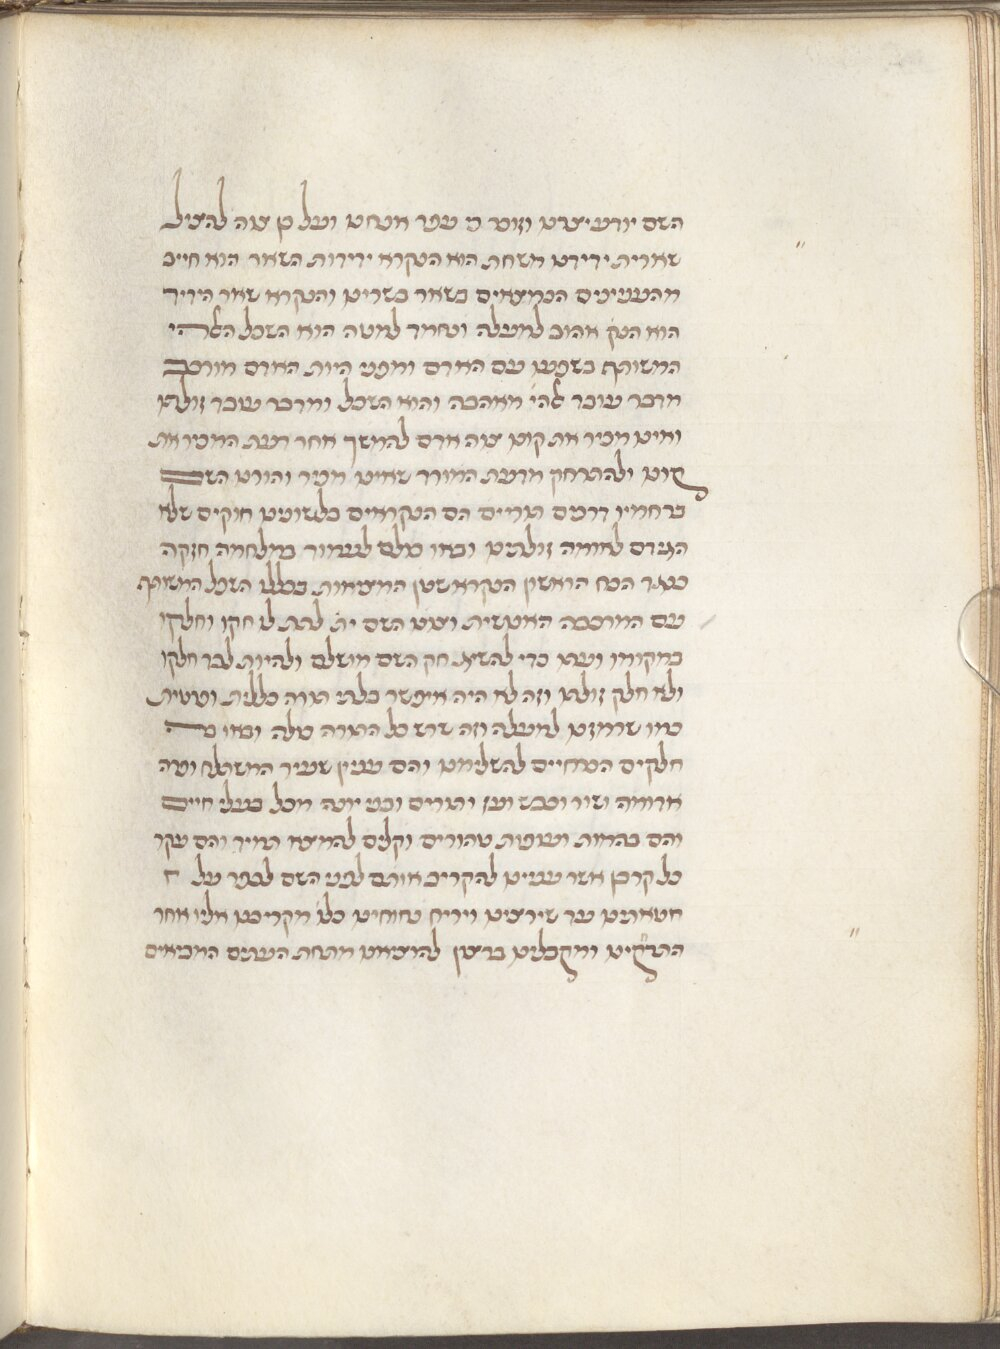 השם יודע יצרנו וזוכר כי עפר אנחנו ועל כן צוה להציל
שארית ידידנו משחת הוא הנקרא ידידות השאר הוא חייב
מהענינים הנמצאים בשאר בשרינו והנקרא שאר הידיד
הוא הנק אהוב למעלה ונחמד למטה הוא השכל האלהי
המשותף בשפע עם האדם ומפני היות האדם מורכב
מדבר עובר להי מאהבה והוא השכל ומדבר עובד זולתו
ואינו מכיר את קונו צוה אדם להמשך אחר דעת המכיר את
קונו ולהתרחק מדעת המורד שאינו מכיר והורנו השם
ברחמיו דרכים תוריים הם הנקראים בלשוננו חוקים שלא
הוגדרם לאומה זולתנו ובאו כלם לעמוד במלחמה חזקה
כנגד הכח הראשון הנקרא שטן המציאות בכללו השכל המשותף
עם המורכבה האנושית וצונו השם ית לתת לו חקו וחלקו
במקומו ועתו כדי להשיא חק השם מושלם ולהיות לבד חלקו
ולא חלק זולתו וזה לא היה איפשר בלתי תורה כללית ופרטית
כמו שרמזנו למעלה וזה שרש כל התורה כלה ובאו בה
חלקים הכרחיים להשלימנו והם ענין שעיר המשתלח ופרה
אדומה ושור וכבש ועז ותורים ובני יונה מכל בעלי חיים
והם בהמות ועופות טהורים וקלים להמצא תמיד והם עקר
כל קרבן אשר ענינו להקריב אותם לפני השם לכפר על
חטאתינו עד שירצינו ויריח ניחוחינו כלו מקריבנו אליו אחר
התרחקינו ומקבלינו ברצון להוציאנו מתחת העתים המביאים